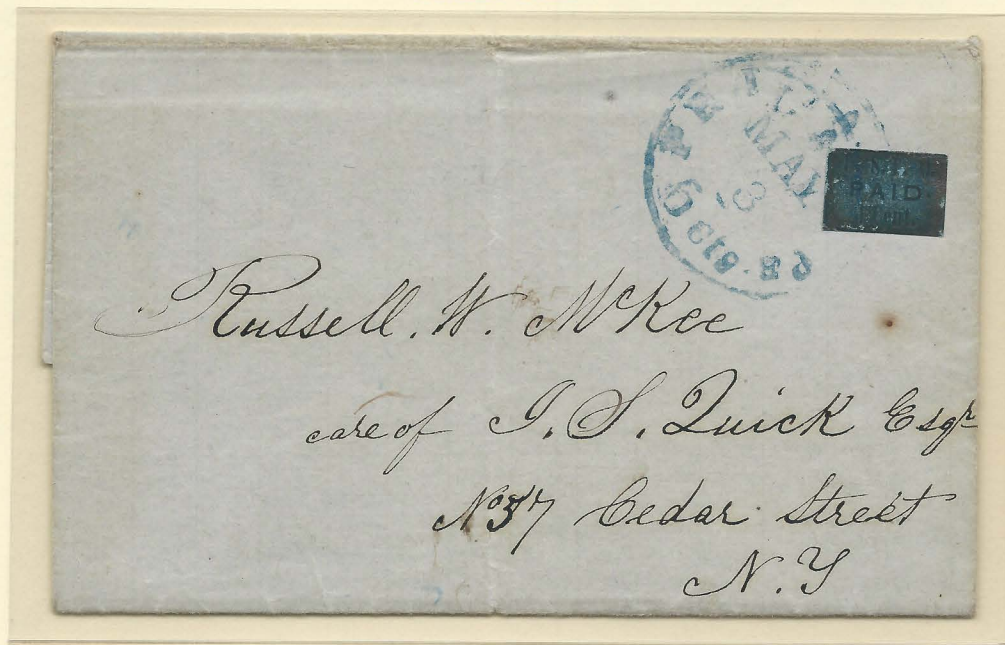 MAY
3
6 cts
PAID
Russell. W. McKee
care of J. S. Quick Esqr
No 57 Cedar Street
N. Y